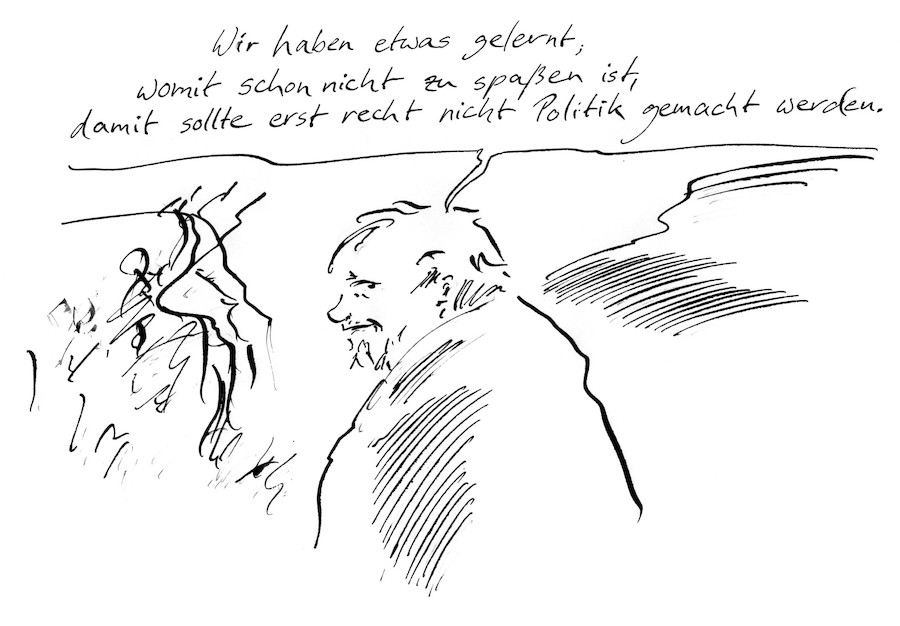 Wir haben etwas gelernt;
womit schon nicht zu spaßen ist,
damit sollte erst recht nicht Politik gemacht werden.